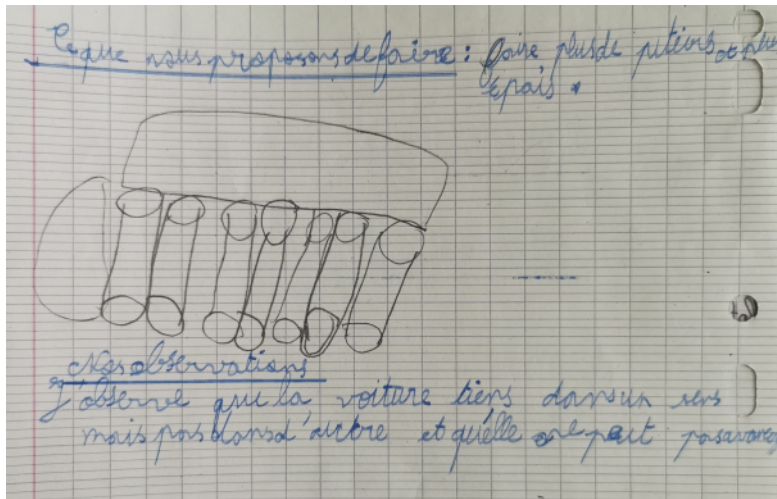 Ce que nous proposons de faire : faire plus de piliers et plus
épais.
Nos observations
J'observe qui la voiture tiens dans un sens
mais pas dans d'autre et qu'elle ne peut pas avancer